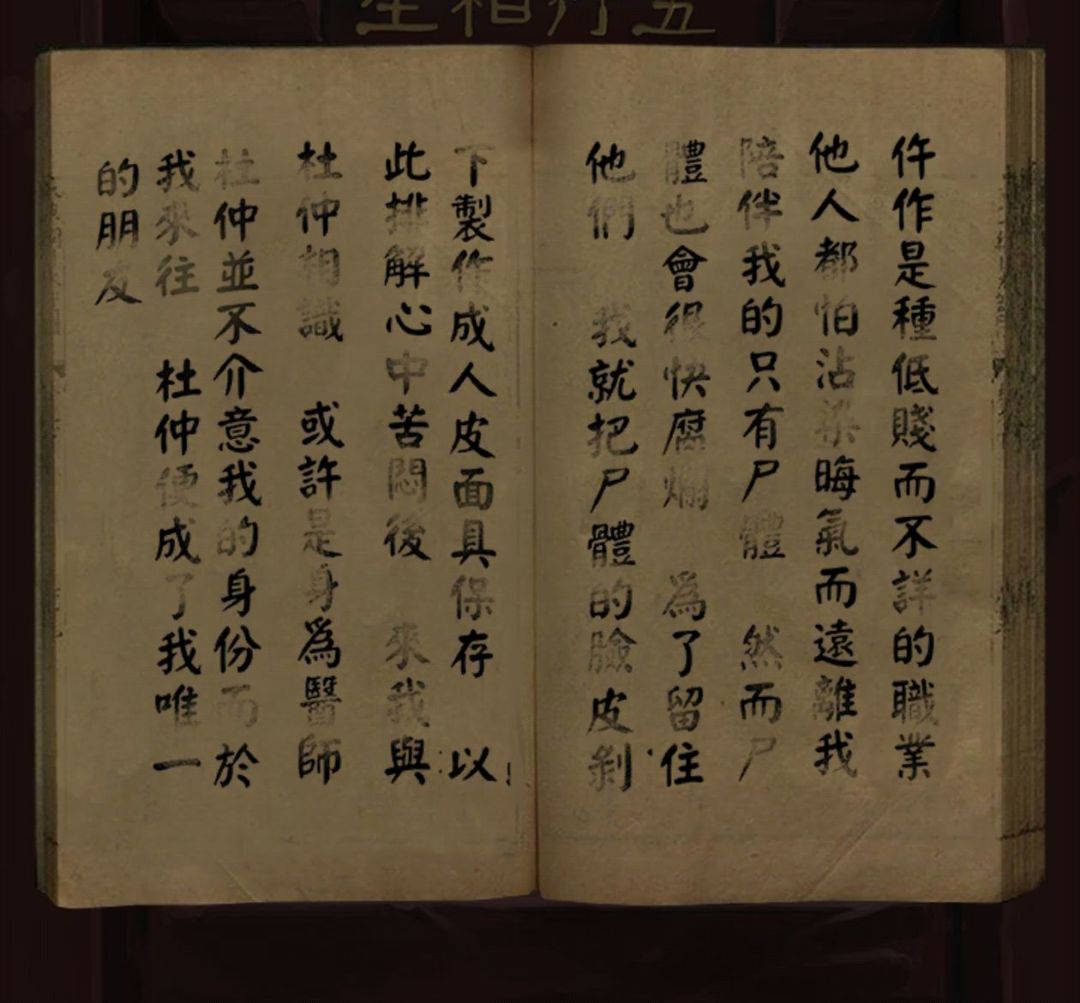 五行相生
仵作是種低賤而不詳的職業
他人都怕沾染晦氣而遠離我
陪伴我的只有尸體 然而尸
體也會很快腐爛 為了留住
他們 我就把尸體的臉皮剝
下製作成人皮面具保存 以
此排解心中苦悶後 來我與
杜仲相識 或許是身爲醫師
杜仲並不介意我的身份而於
我來往 杜仲便成了我唯一
的朋友